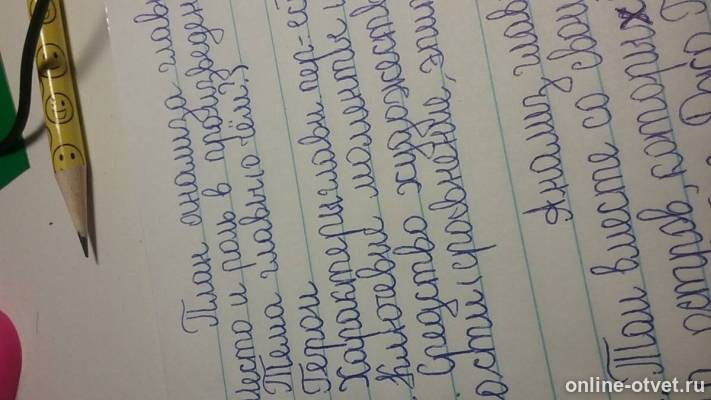 План анализа главы
Место и роль в произведен
Тема главы (о чём?)
Герои
Характеры главн. пер-ей
Ключевые моменты
Средства художеств
ости (сравнение, эпит
Анализ глав
Том вместе со свои
остров, которых
online-otvet.ru